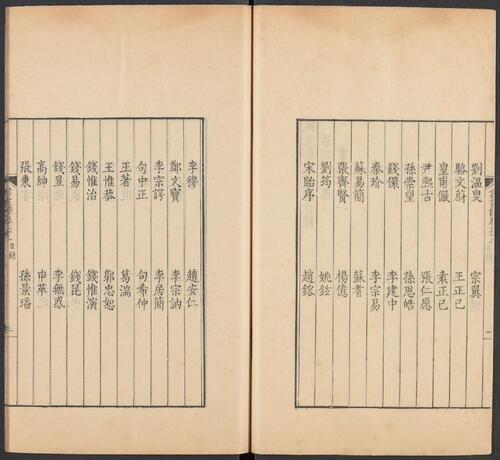 劉溫叟 宗翼
駱文蔚 王正己
皇甫儼 袁正己
尹熙古 張仁愿
孫崇望 孫思皓
錢儼 李建中
秦玠 李宗易
蘇易簡 蘇耆
張齊賢 楊億
劉筠 姚鉉
宋貽序 趙鎔
李穆 趙安仁
鄭文寶 李宗訥
李宗諤 李居簡
句中正 句希仲
王著 葛湍
王惟恭 郭忠恕
錢惟治 錢惟演
錢易 錢昆
錢昱 李無惑
高紳 申革
張東 孫景璠
目錄